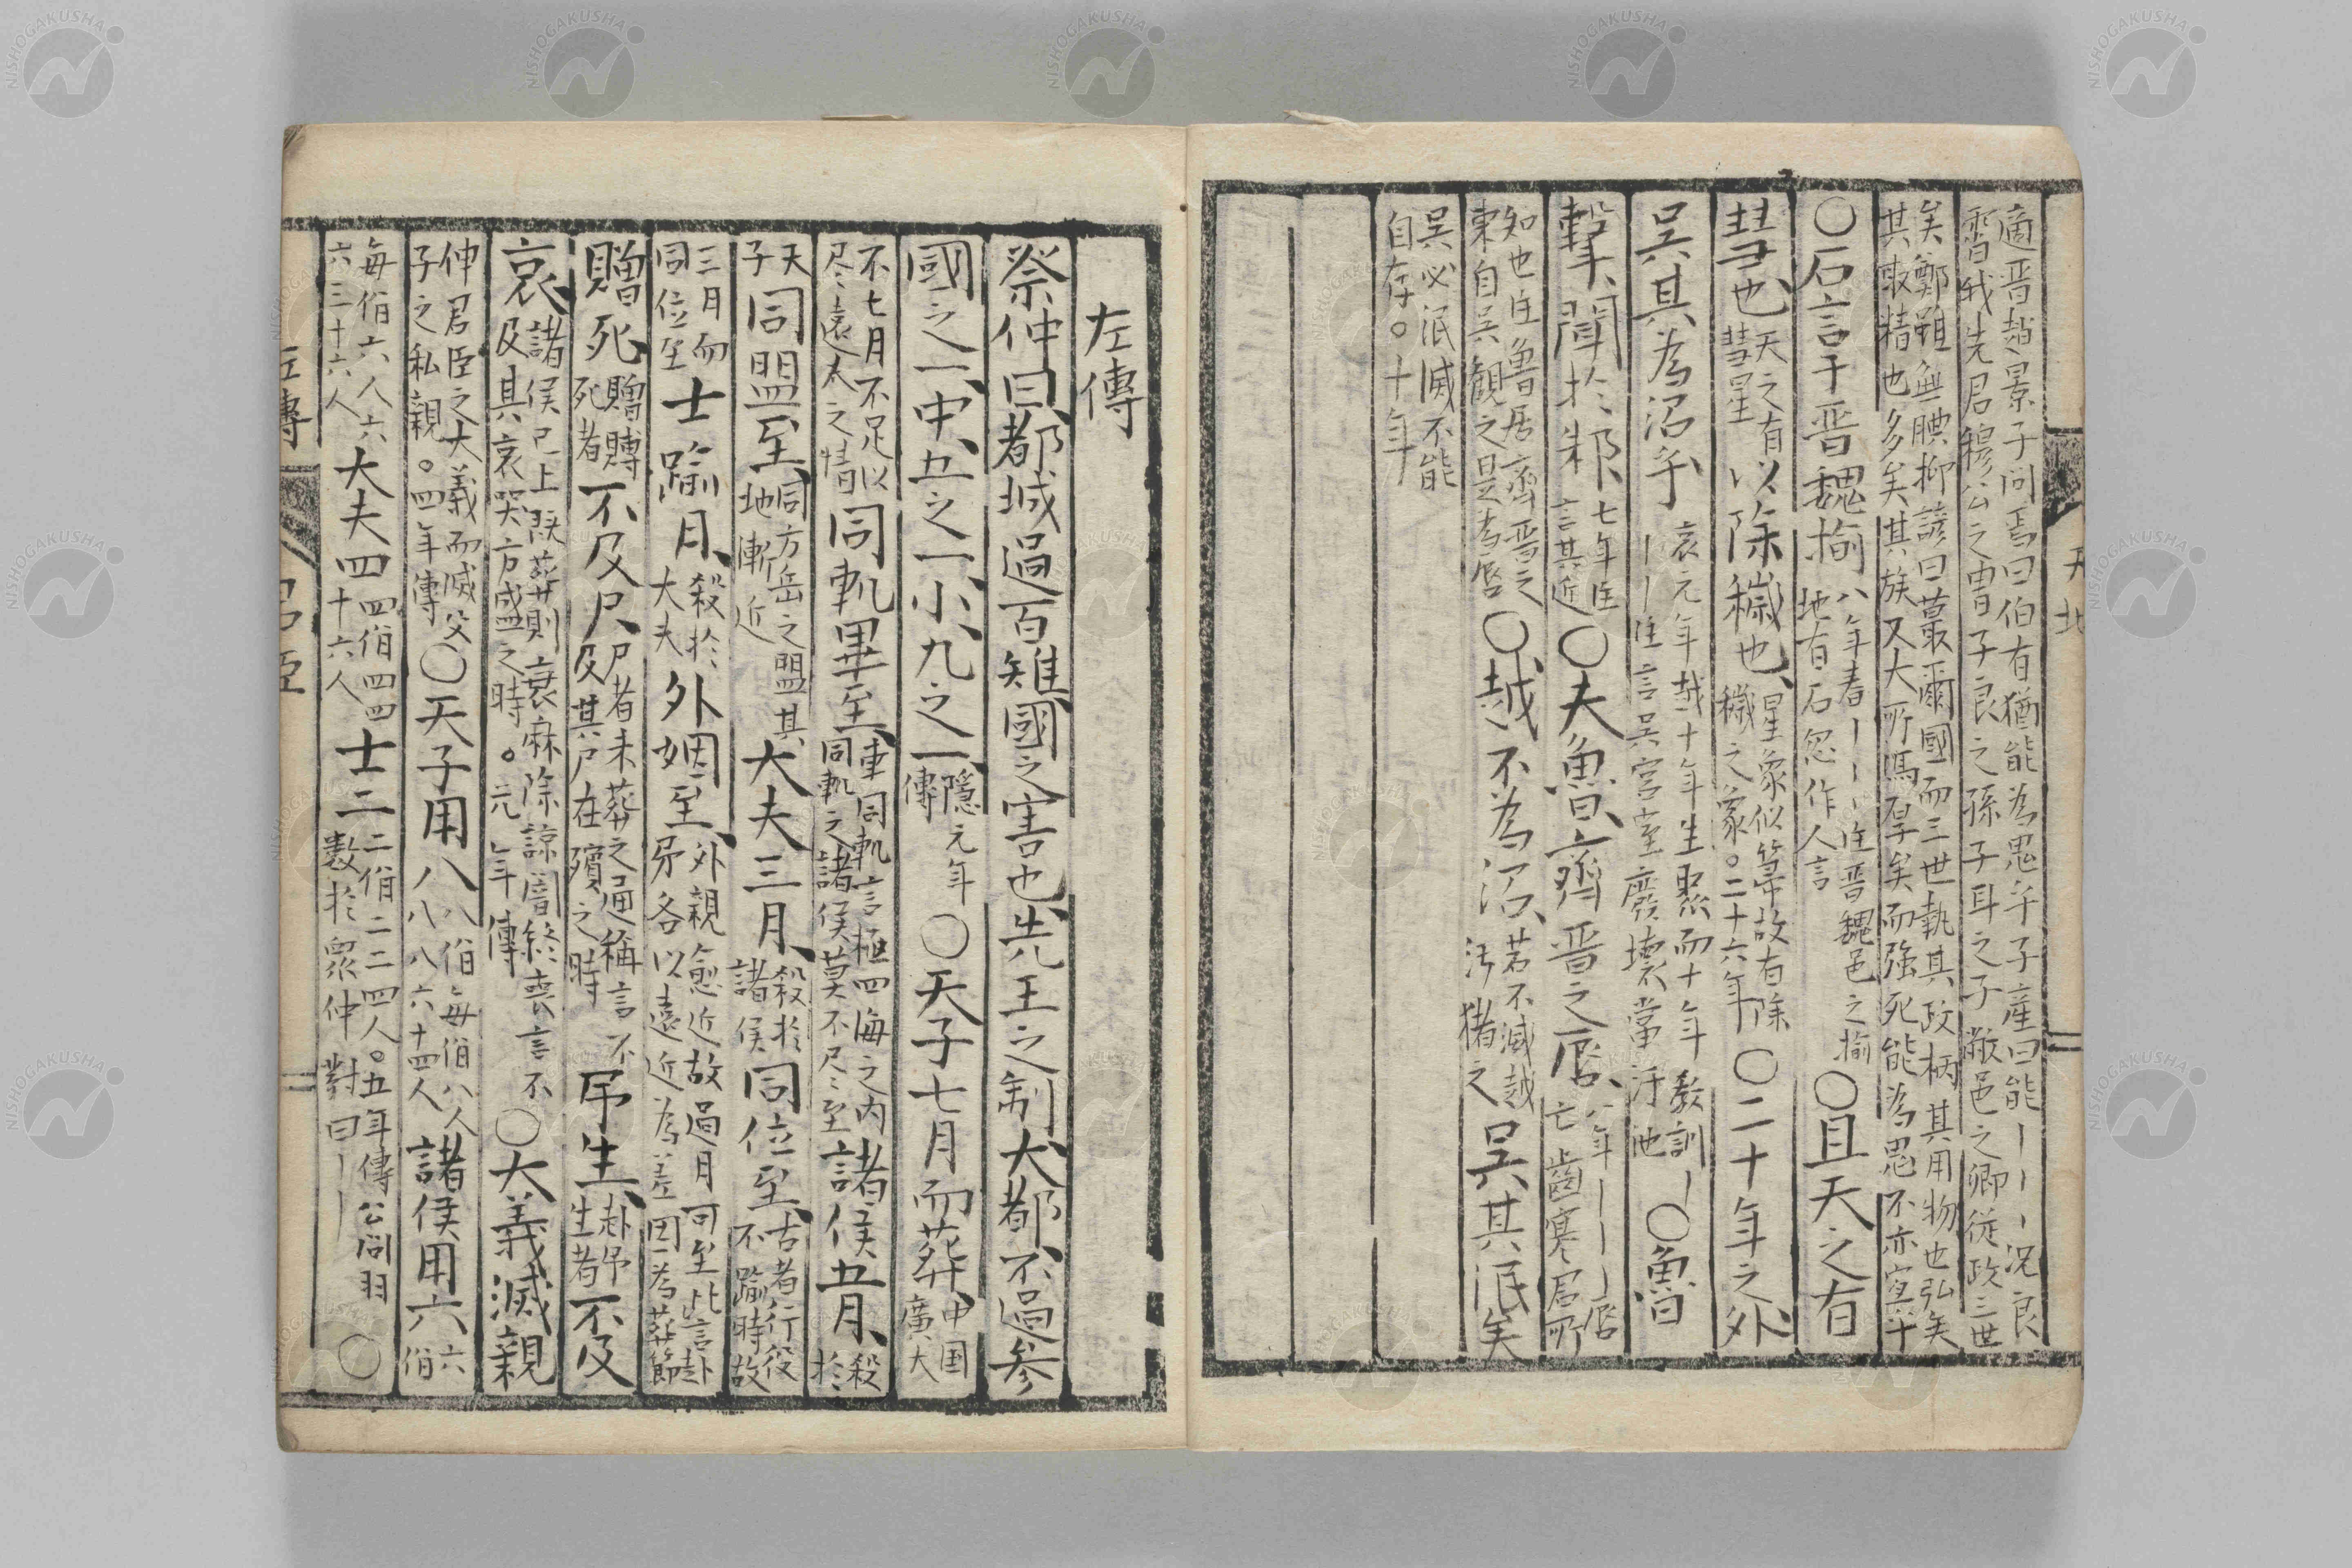 適晋趙景子問焉曰伯有猶能為鬼乎子産曰能丨丨丨况良
霄我先君穆公之冑子良之孫子耳之子敝邑之卿従政三世
矣鄭雖無腆抑諺曰蕞爾國而三世執其政柄其用物也弘矣
其取精也多矣其族又大所馮厚矣而強死能為鬼不亦宜乎
○石言于晋魏揄 八年春丨丨丨注晋魏邑之揄
地有石忽作人言 ○且天之有
彗也 天之有
彗星 以除穢也 星象似箒故有除
穢之象。二十六年 ○二十年之外
吴其為沼乎 哀元年越十年生聚而十年教訓丨
丨丨注言吴宮室廢壊當汙池 ○魯
撃聞於邾 七年注
言其近 ○夫魯齊晋之唇 八年丨丨丨丨唇
亡齒寒君所
知也注魯居齊晋之
東自吴観之是為唇 ○越不為沼 若不滅越
汙猪之 吴其泯矣
吴必泯滅不能
自存。十年
天地
左傳
祭仲曰都城過百雉國之害也先王之制大都不過参
國之一中五之一小九之一 隠元年
傳 ○天子七月而葬 中国
廣大
不七月不足以
尽遠近之情 同軌畢至 車同軌言極四海之内
同軌之諸侯莫不尽至 諸侯五月 殺
於
天
子 同盟至 同方岳之盟其
地漸近 大夫三月 殺於
諸侯 同位至 古者行役
不踰時故
三月而
同位至 士踰月 殺於
大夫 外姻至 外親愈近故過月可至此言赴
弔各以遠近為差因為葬節
贈死 贈賻
死者 不及尸 尸者未葬之通稱言不
及其尸在殯之時 弔生 赴弔
生者 不及
哀 諸侯已上既葬則衰麻除諒闇終喪言不
及其哀哭方盛之時。元年傳 ○大義滅親
伸君臣之大義而滅父
子之私親。四年傳 ○天子用八 八佾毎佾八人
八八六十四人 諸侯用六 六
佾
毎佾六人六
六三十六人 大夫四 四佾四四
十六人 士二 二佾二二四人。五年傳公問羽
數於衆仲對曰丨丨 ○
左傳 君臣